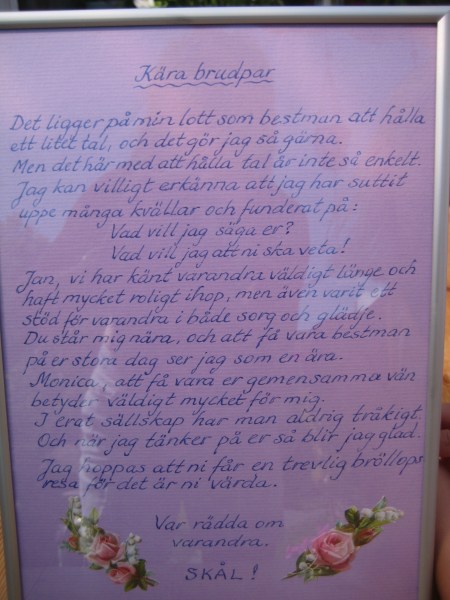 Kära brudpar
Det ligger på min lott som bestman att hålla
ett litet tal, och det gör jag så gärna.
Men det här med att hålla tal är inte så enkelt.
Jag kan villigt erkänna att jag har suttit
uppe många kvällar och funderat på:
Vad vill jag säga er?
Vad vill jag att ni ska veta!
Jan, vi har känt varandra väldigt länge och
haft mycket roligt ihop, men även varit ett
stöd för varandra i både sorg och glädje.
Du står mig nära, och att få vara bestman
på er stora dag ser jag som en ära.
Monica, att få vara er gemensamma vän
betyder väldigt mycket för mig.
I erat sällskap har man aldrig tråkigt.
Och när jag tänker på er så blir jag glad.
Jag hoppas att ni får en trevlig bröllops
resa för det är ni värda.
Var rädda om
varandra.
SKÅL!